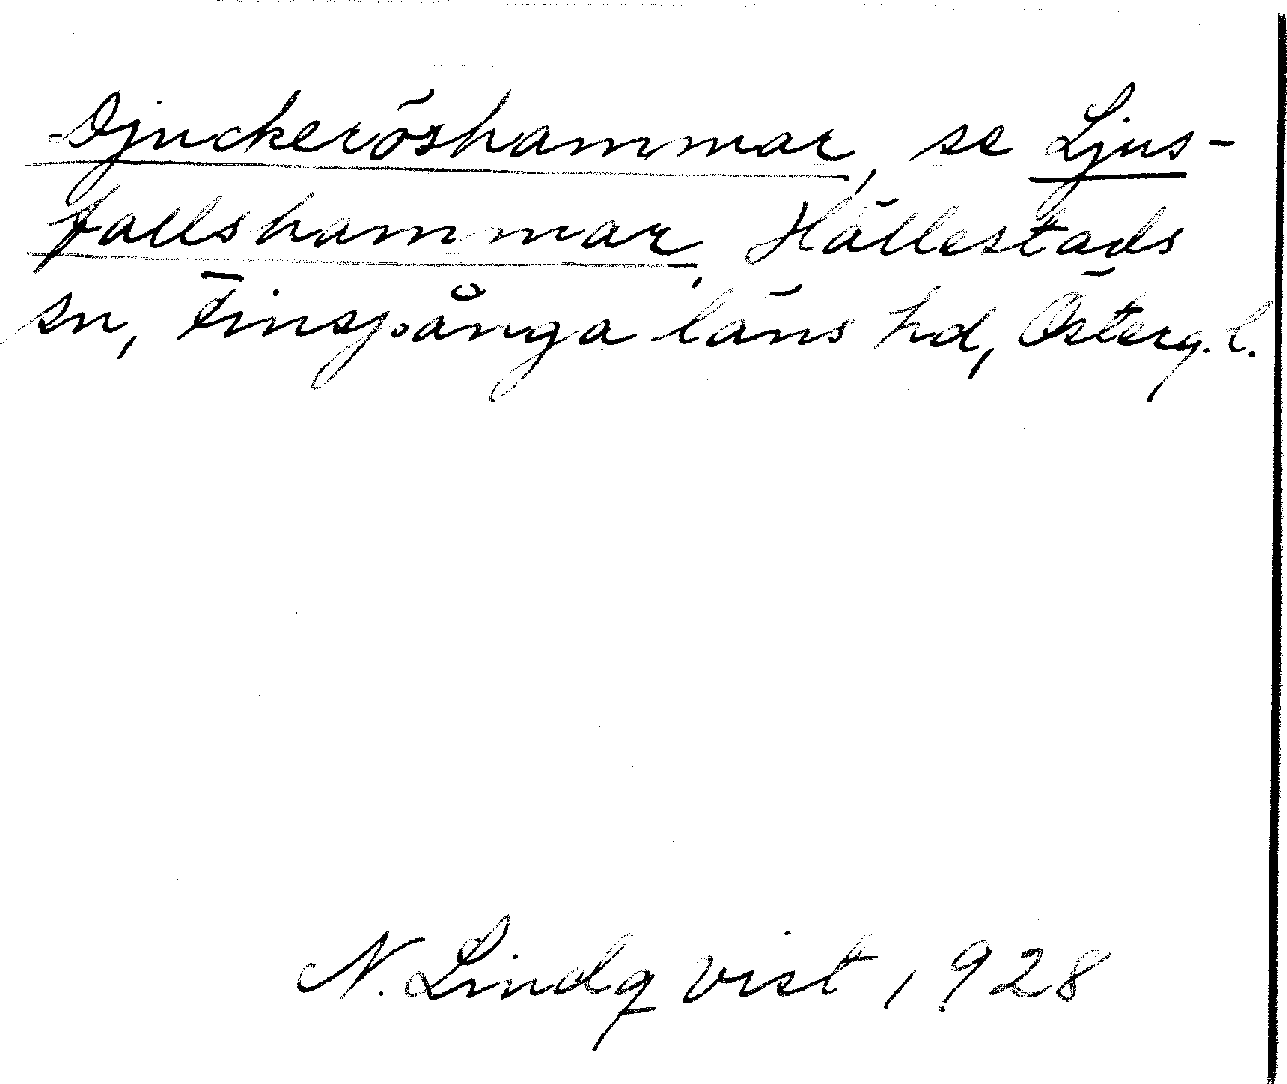 Djuckeröshammar, se Ljus-
fallshammar, Hällestads
sn, Finspånga läns hd, Österg.l.
N. Lindqvist 1928